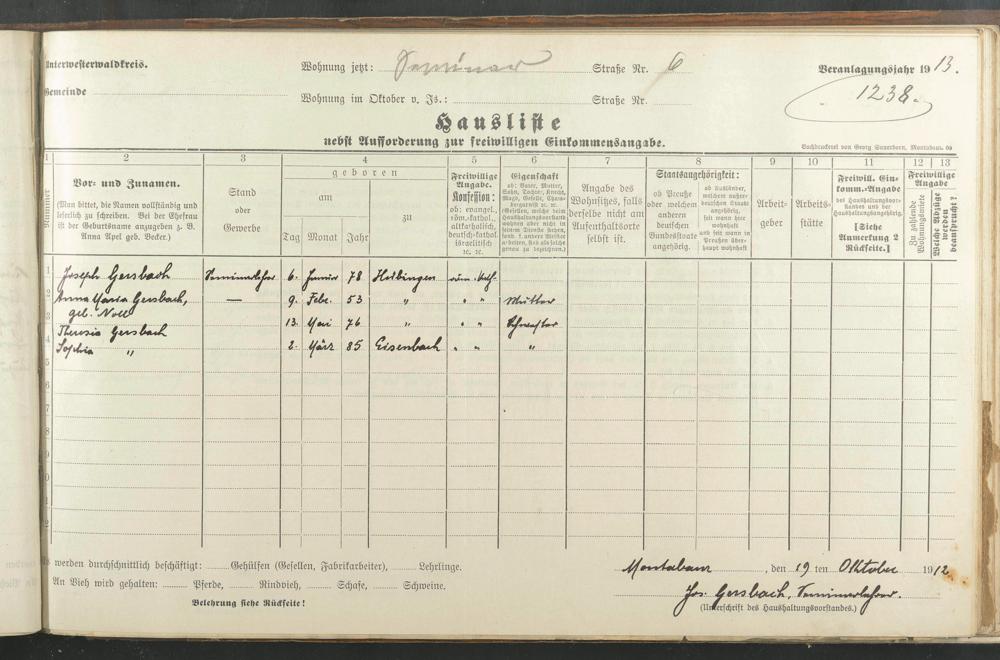 Unterwesterwaldkreis.
Wohnung jetzt: Seminar Straße Nr. 6
Veranlagungsjahr 1913.
Gemeinde
Wohnung im Oktober v. Js.: Straße Nr.
1238.
Hausliste
nebst Aufforderung zur freiwilligen Einkommensangabe.
Buchdruckerei von Georg Sauerborn, Montabaur.
1 2 3 4 5 6 7 8 9 10 11 12 13
Nummer
Vor- und Zunamen.
(Man bittet, die Namen vollständig und
leserlich zu schreiben. Bei der Ehefrau
ist der Geburtsname anzugeben z. B.
Anna Apel geb. Becker.)
Stand
oder
Gewerbe
geboren
am
zu
Tag Monat Jahr
Freiwillige
Angabe.
Konfession:
ob: evangel.,
röm.-kathol.,
altkatholisch,
deutsch-kathol.
israelitisch
ꝛc. ꝛc.
Eigenschaft
ob: Vater, Mutter,
Sohn, Tochter, Knecht,
Magd, Geselle,
Angabe des
Wohnsitzes, falls
derselbe nicht am
Aufenthaltsorte
selbst ist.
Staatsangehörigkeit:
ob Preuße
oder welchem
anderen
deutschen
Bundesstaate
angehörig.
ob Ausländer,
welchem außer-
deutschen Staate
angehörig,
seit wann hier
wohnhaft und
seit wann in
Preußen über-
haupt wohnhaft
Arbeit-
geber
Arbeits-
stätte
Freiwill. Ein-
komm.-Angabe
des Haushaltungsvor-
standes und der
Haushaltungsangehörig.
[Siehe
Anmerkung 2
Rückseite.]
Freiwillige
Angabe
Zu zahlende
Wohnungsmiete
Welche Abzüge
werden
beansprucht?
1 Joseph Gersbach Seminarlehrer 6. Januar 78 Heilbingen röm. Kath.
2 Anna Maria Gersbach, — 9. Febr. 53 " " " Mutter
geb. Noll
3 13. Mai 76 " " " Schwester
Theresia Gersbach
4 Sophia " 2. März 85 Eisenbach " " "
5
6
7
8
9
0
1
2
werden durchschnittlich beschäftigt: Gehülfen (Gesellen, Fabrikarbeiter), Lehrlinge.
An Vieh wird gehalten: Pferde, Rindvieh, Schafe, Schweine.
Belehrung siehe Rückseite!
Montabaur, den 19 ten Oktober 1912
Jos. Gersbach, Seminarlehrer.
(Unterschrift des Haushaltungsvorstandes.)